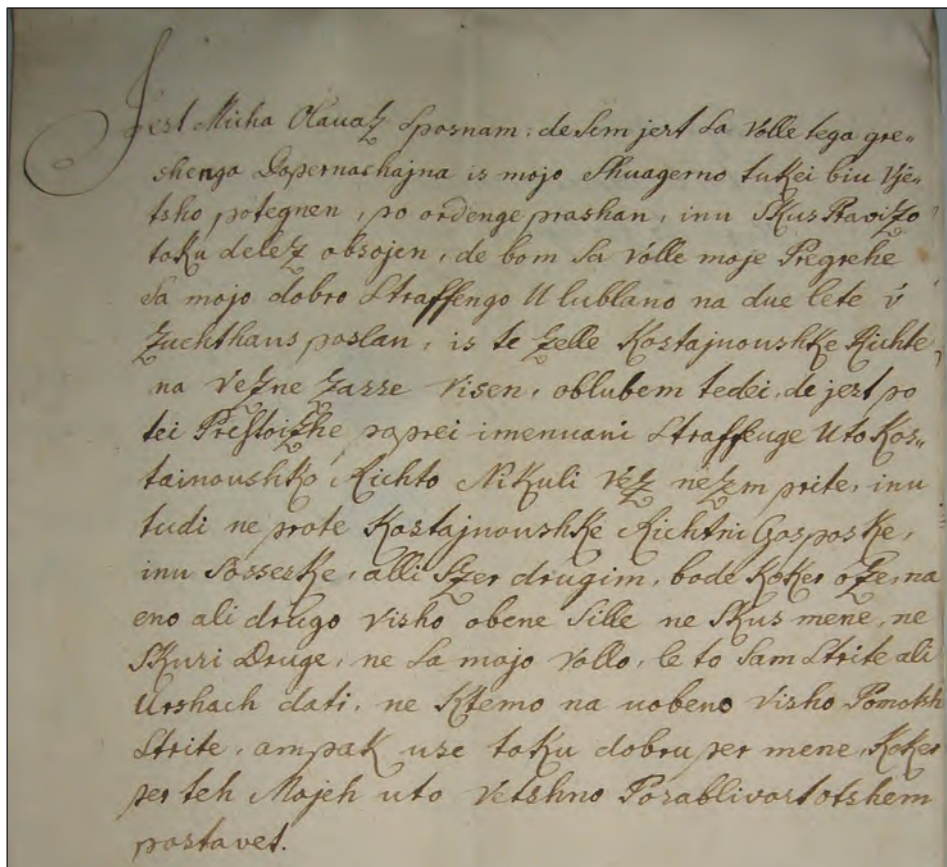 Jest Micha Olauaz Sposnam: de sem jest sa volle tega gre„
shenga Dopernashajna is mojo Shuagerno tukei biu Vje„
tsho potegnen, po ordenge prashan, inu Skus Pravizo
toku delez obsojen, de bom sa volle moje Pregrehe
sa mojo dobro Straffengo U lublano na due lete v
Zuchthaus poslan, is te zelle Kostajnoushke Richte
na vezne zasse visen, oblubem tedei, de jest po
tei Prestoizhe poprei imenuani Straffenge Uto Kos„
tainoushko Richto Nikuli vez nezm prite, inu
tudi ne prote Kostajnoushke Richtni Gosposke,
inu Sosseske, alli Szer drugim, bode Koker oze, na
eno ali drugo visho obene Sille ne Skus mene, ne
Skusi Druge, ne sa mojo vollo, le to sam Strite ali
Urshach dati, ne Ktemo na uobeno visho Pomotsh
Strite, ampak use toku dobru per mene, Koker
per teh Mojeh uto vetshno Posablivost otshem
postavet.